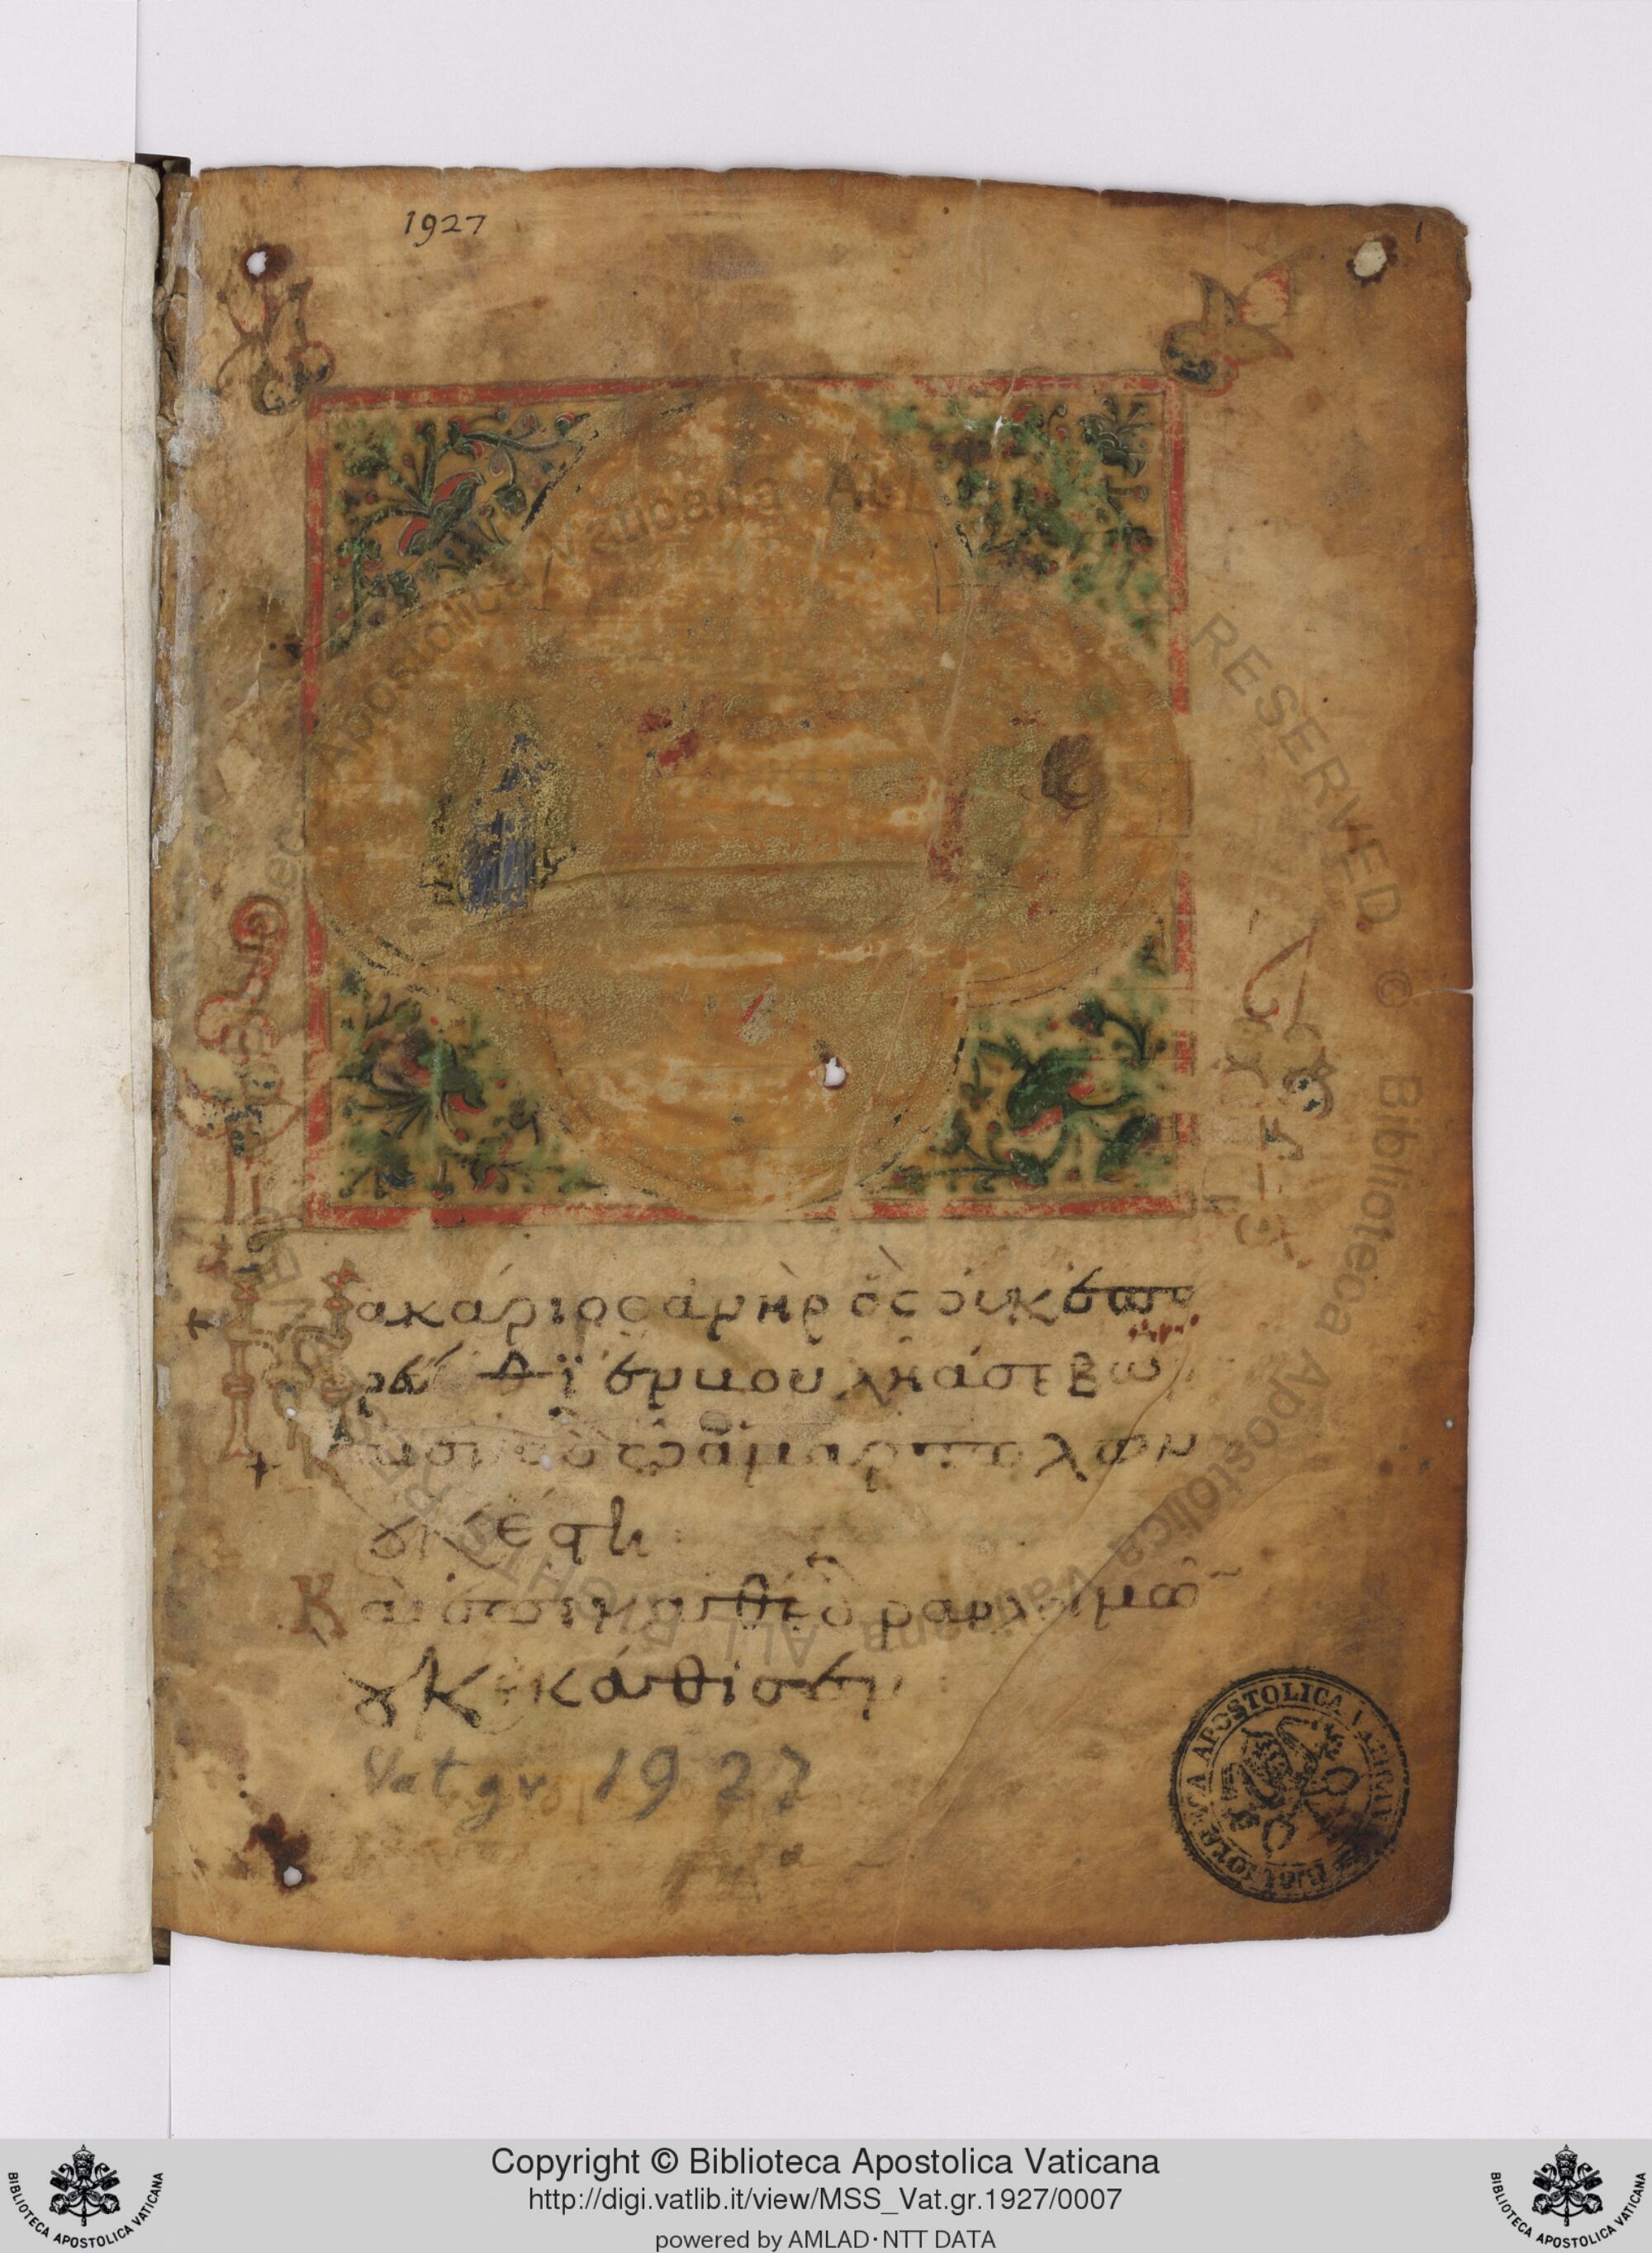 1927
1
Μακάριος ἀνὴρ ὃς οὐκ ἐπο
ρεύθη ἐν βουλῆ ἀσεβῶν
Καὶ ἐν ὁδῶ ἁμαρτωλῶν
οὐκ ἔστη
Καὶ ἐπὶ καθέδραν λοιμῶν
οὐκ ἐκάθισεν
Vat gr 1927
BIBLIOTECA APOSTOLICA VATICANA
Biblioteca Apostolica Vaticana ALL RIGHTS RESERVED ©
Copyright © Biblioteca Apostolica Vaticana
http://digi.vatlib.it/view/MSS_Vat.gr.1927/0007
powered by AMLAD·NTT DATA
BIBLIOTECA APOSTOLICA VATICANA
BIBLIOTECA APOSTOLICA VATICANA